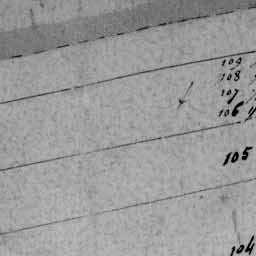 109
108
107
106
105
104